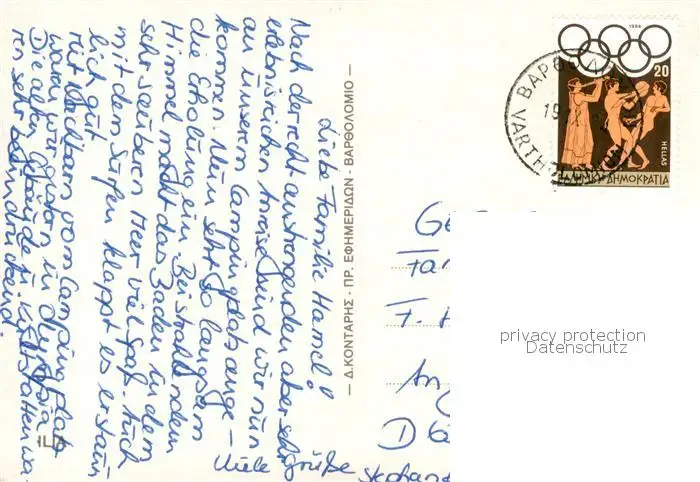 Liebe Familie Hamel!
Nach der recht anstrengenden aber sehr
erlebnisreichen Anreise sind wir nun
an unserem Campingplatz ange-
kommen. Nun sehr so langsam
die Erholung ein. Bei strahlendem
Himmel macht das Baden in dem
sehr sauberen Meer viel Spaß. Auch
mit dem Surfen klappt es erstaun
lich gut.
vom Campingplatz
waren wir gestern in Olympia
Die alten Gebäude u. Kultstätten wa-
ren sehr beeindruckend.
Viele Grüße
Stephan
— Δ.ΚΟΝΤΑΡΗΣ - ΠΡ. ΕΦΗΜΕΡΙΔΩΝ - ΒΑΡΘΟΛΟΜΙΟ —
1984
20
HELLAS
ΕΛΛΗΝΙΚΗ ΔΗΜΟΚΡΑΤΙΑ
ΒΑΡΘΟΛ
VARTH
19
Fam
F. H
D
privacy protection
Datenschutz